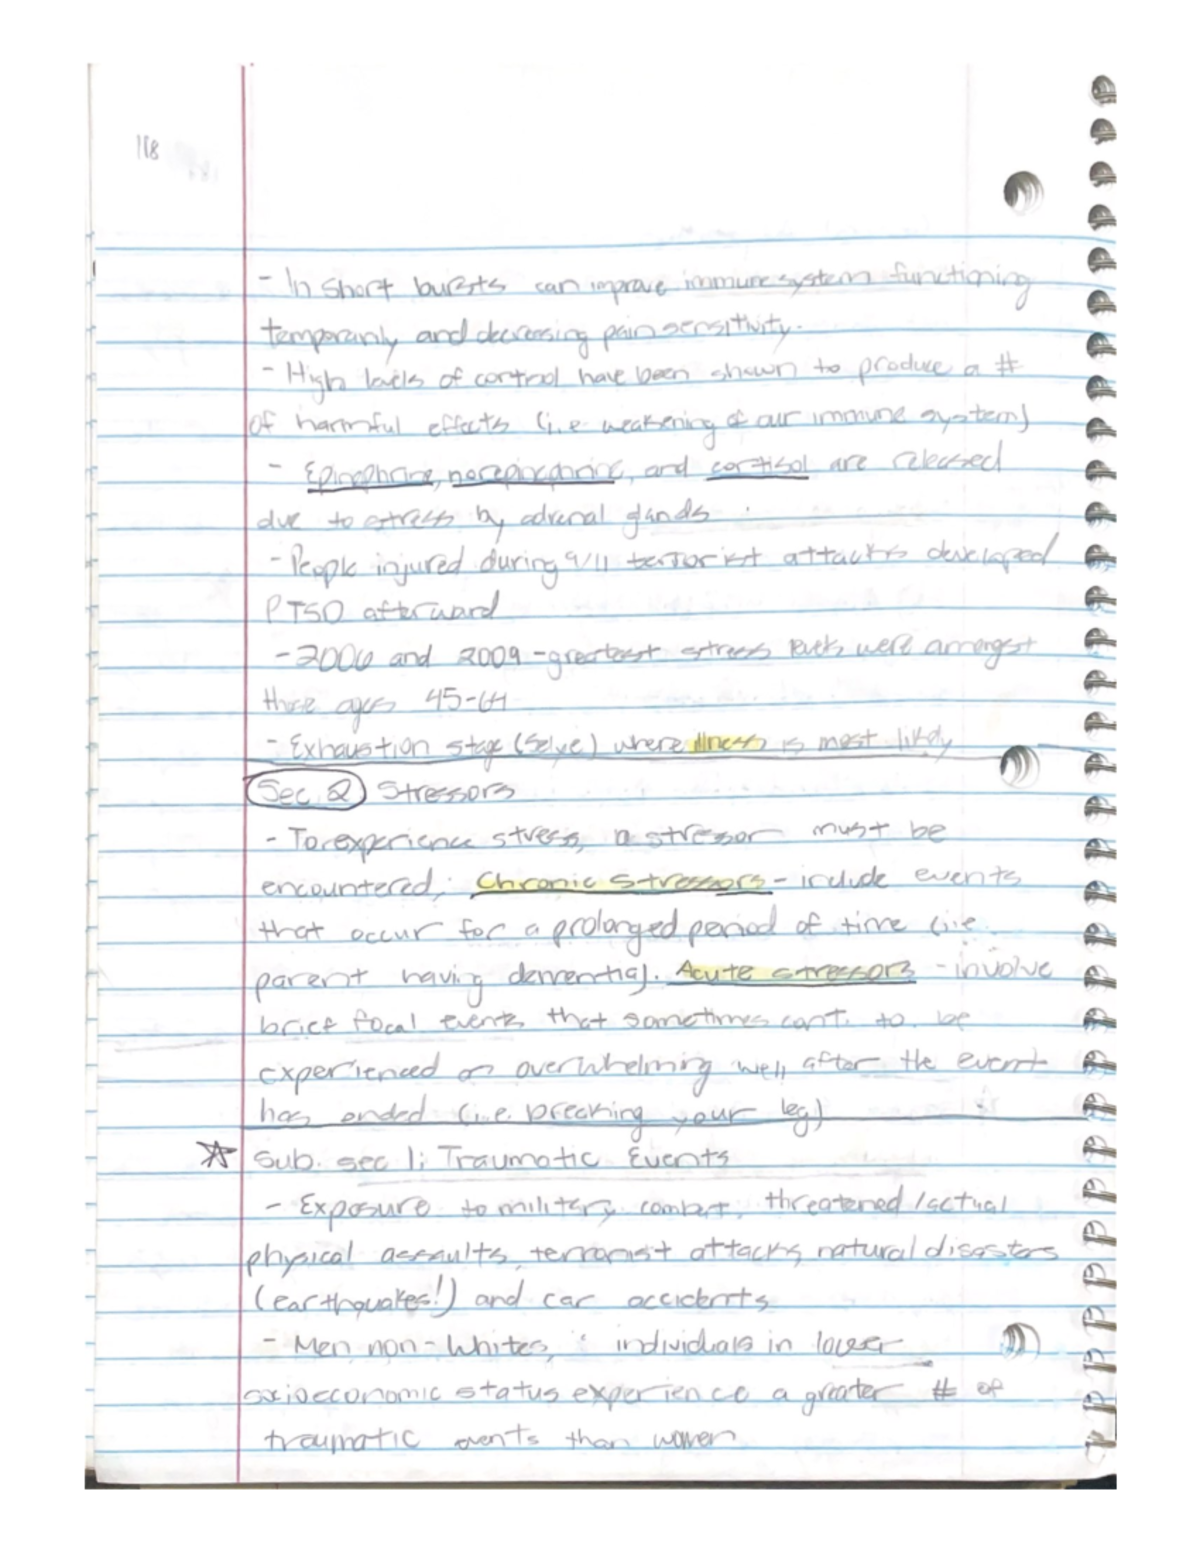 118
- In short bursts can improve immune system functioning
temporarily and decreasing pain sensitivity.
- High levels of control have been shown to produce a #
of harmful effects (i.e. weakening of our immune system)
- Epinephrine, norepinephrine, and cortisol are released
due to stress by adrenal glands
- People injured during 9/11 terrorist attacks developed
PTSD afterward
- 2006 and 2009 - greatest stress levels were amongst
those ages 45-64
- Exhaustion stage (Selye) where illness is most likely
Sec. 2 Stressors
- To experience stress, a stressor must be
encountered; Chronic stressors - include events
that occur for a prolonged period of time (i.e.
parent having dementia). Acute stressors - involve
brief focal events that sometimes cont. to be
experienced as overwhelming well after the event
has ended (i.e. breaking your leg)
Sub. sec 1: Traumatic Events
- Exposure to military combat, threatened/actual
physical assaults, terrorist attacks, natural disasters
(earthquakes!) and car accidents
- Men, non-Whites, individuals in lower
socioeconomic status experience a greater # of
traumatic events than women